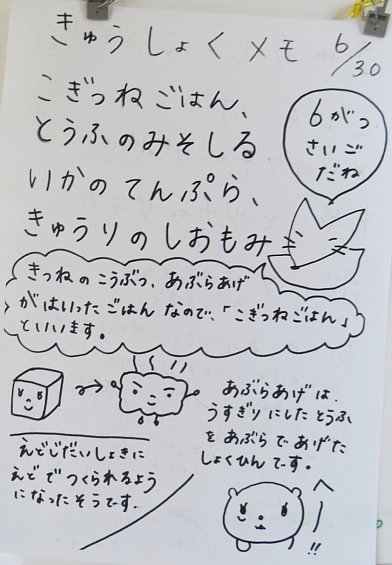 きゅうしょくメモ 6/30
こぎつねごはん、
とうふのみそしる
いかのてんぷら、
きゅうりのしおもみ
6がつ
さいご
だね
きつねのこうぶつ、あぶらあげ
がはいったごはんなので、「こぎつねごはん」
といいます。
あぶらあげは、
うすぎりにしたとうふ
をあぶらであげた
しょくひんです。
えどじだいしょきに
えどでつくられるよう
になったそうです。
へー!!